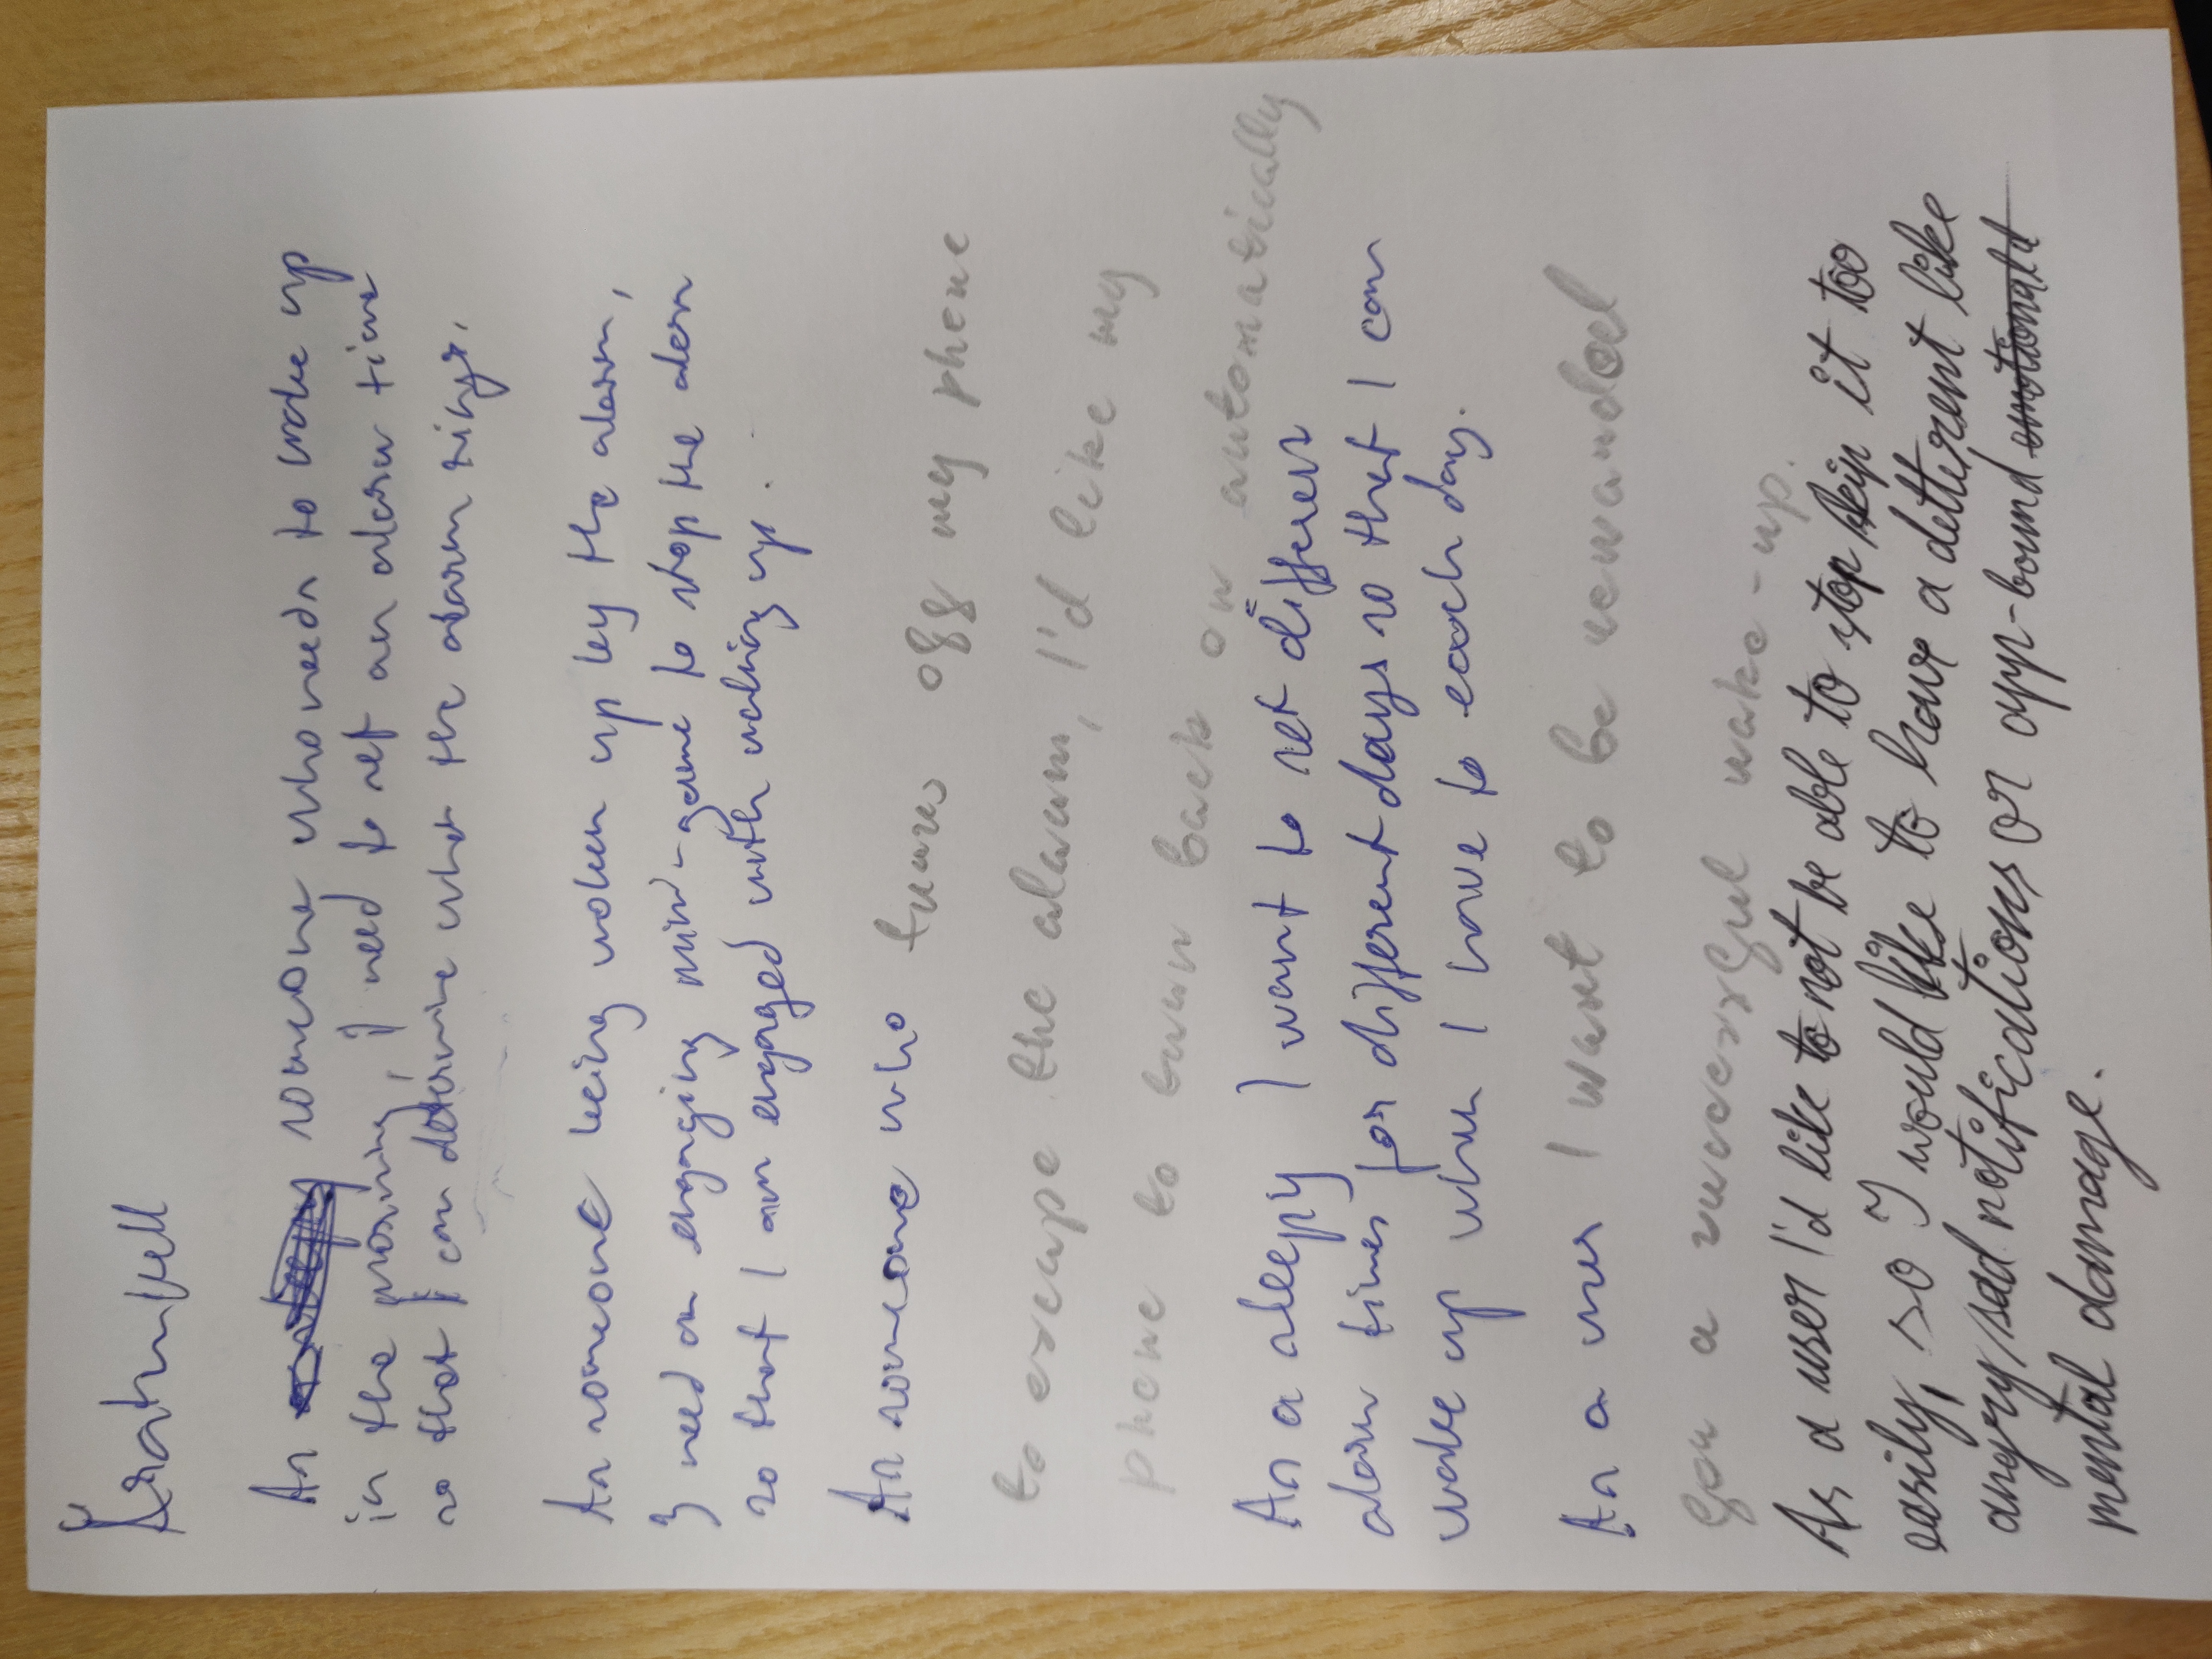 Äratuskell
As a sleepy someone who needs to wake up
in the morning, I need to set an alarm time
so that I can determine when the alarm rings.
As someone being woken up by the alarm,
I need an engaging mini-game to stop the alarm
so that I am engaged with waking up.
As someone who turns off my phone
to escape the alarm, I'd like my
phone to turn back on automatically
As a sleepy I want to set different
alarm times for different days so that I can
wake up when I have to each day.
As a user I want to be rewarded
for a successful wake-up.
As a user I'd like to not be able to stop/skip it too
easily, so I would like to have a detterent like
angry/sad notifications or app-bound emotional d
mental damage.